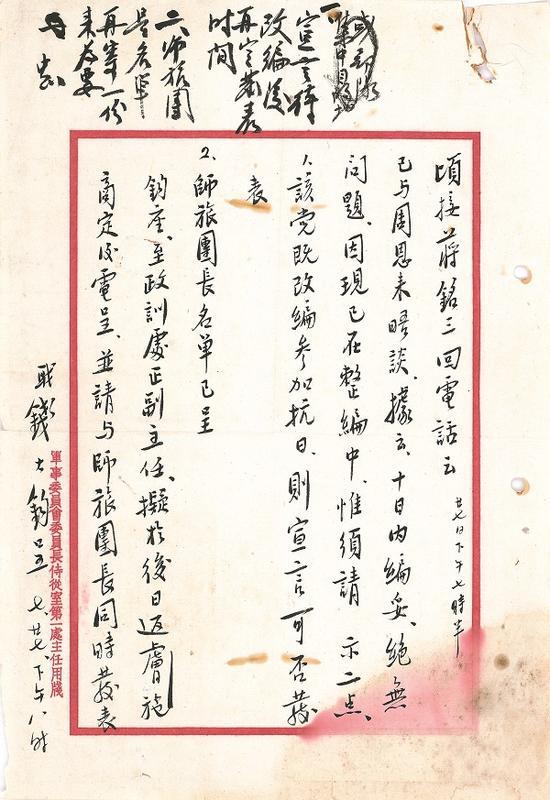 一宣言待
改編後
再定發表
時間
二師旅團
長名單
再寄一份
来為要
頃接蔣銘三回電話云 廿七日下午七時半
已与周恩来晤談、據云、十日内編妥、絕無
問題、因現已在整編中、惟須請 示二点、
1、該党既改編參加抗日、則宣言可否發
表
2、師旅團長名单已呈
鈞座、至政訓處正副主任、擬於後日返膚施
商定後電呈、並請与師旅團長同時發表
職錢大鈞呈 七、廿七、下午八時
軍事委員會委員長侍從室第一處主任用牋